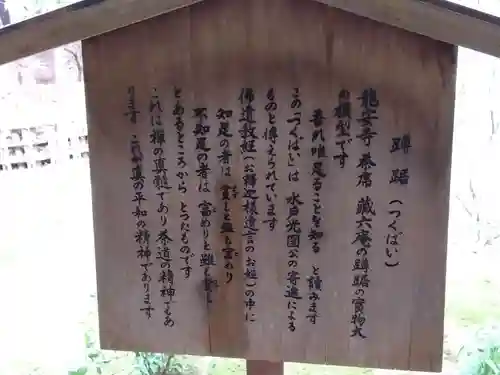 蹲踞（つくばい）
龍安寺 茶席 藏六庵の蹲踞の實物大
の模型です
吾れ唯足ることを知る と讀みます
この「つくばい」は 水戸光圀公の寄進による
ものと傳えられています
佛道教經（お釋迦様遺言のお經）の中に
知足の者は 貧しと雖も富めり
不知足の者は 富めりと雖も貧し
とあるところから とつたものです
これは禪の真髄であり 茶道の精神でもあ
ります これが真の平和の精神であります